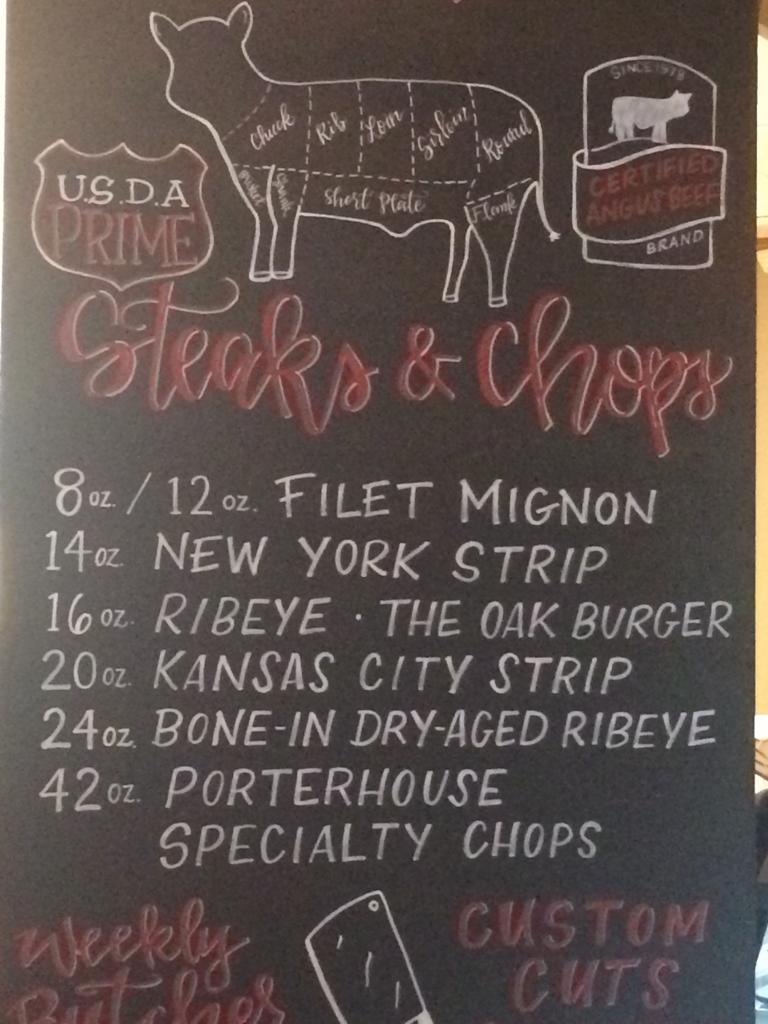 SINCE 1978
Chuck
Rib
Loin
Sirloin
Round
Brisket
Shank
Short Plate
Flank
U.S.D.A
PRIME
CERTIFIED
ANGUS BEEF
BRAND
Steaks & Chops
8oz. / 12oz. FILET MIGNON
14oz. NEW YORK STRIP
16oz. RIBEYE · THE OAK BURGER
20oz. KANSAS CITY STRIP
24oz. BONE-IN DRY-AGED RIBEYE
42oz. PORTERHOUSE
SPECIALTY CHOPS
Weekly
Butcher
CUSTOM
CUTS